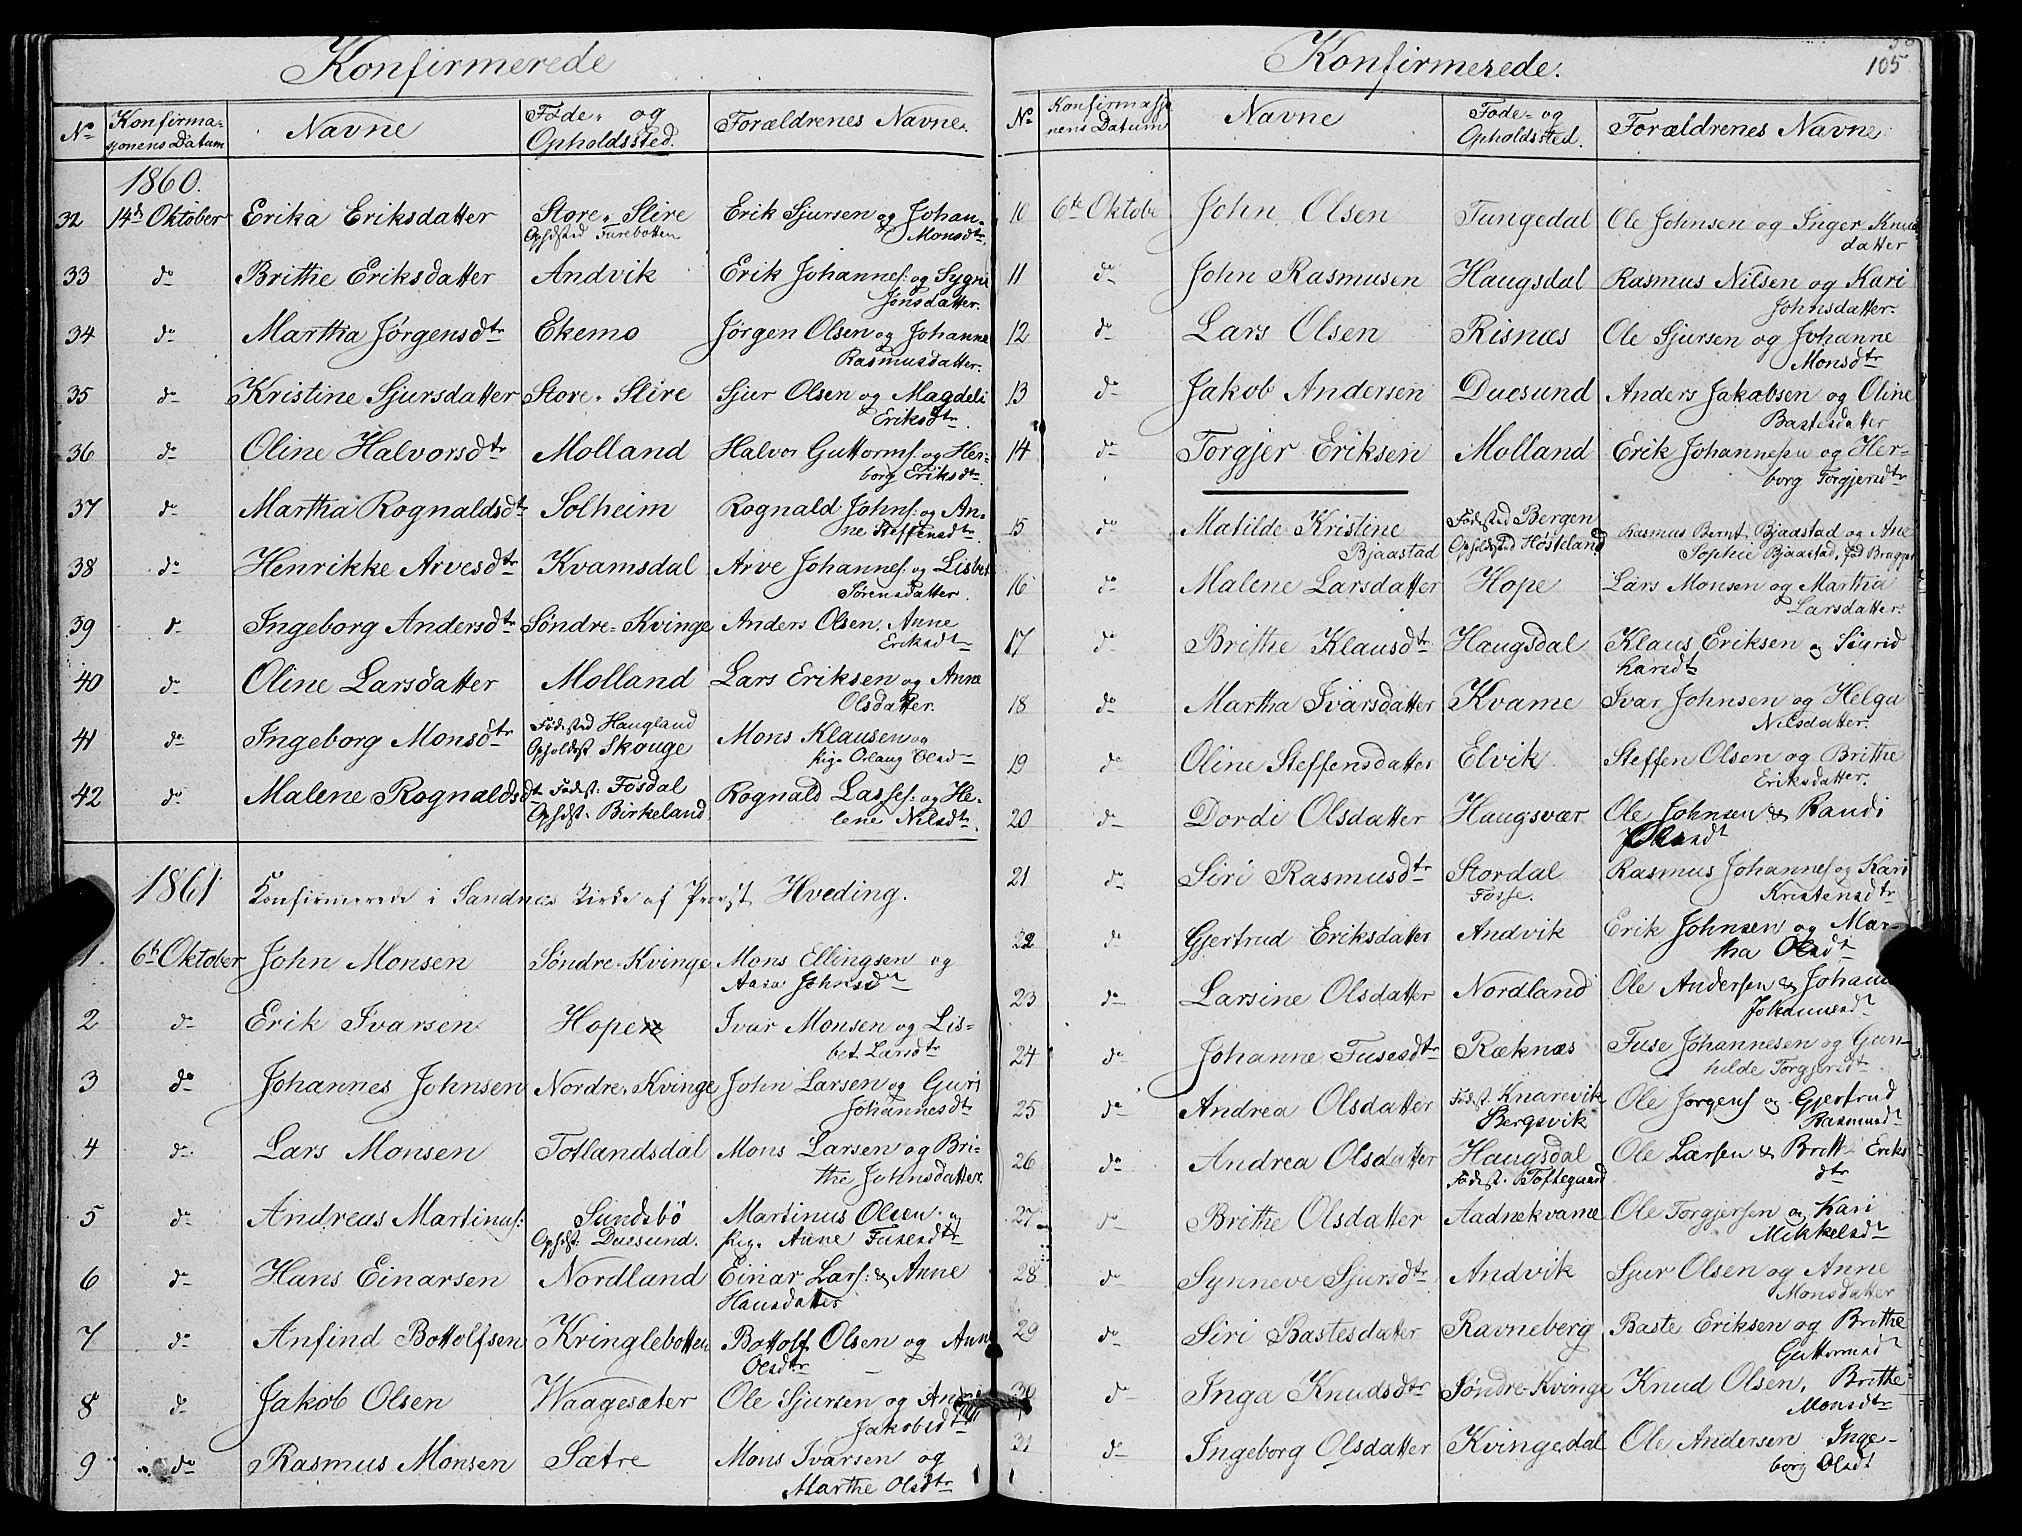 Konfirmerede
No Konfirma- Navne Føde- og Forældrenes Navne.
sjonens Datum Opholdssted.
1860.
32 14de Oktober Erika Eriksdatter Store-Slire Erik Sjursen og Johan-
Ophdsted Furebotten Monsdtr.
33 do Brithe Eriksdatter Andvik Erik Johannes: og Sygni
Jonsdatter.
34 do Martha Jørgensdtr Ekemo Jørgen Olsen og Johanne
Rasmusdatter.
35 do Kristine Sjursdatter Store-Slire Sjur Olsen og Magdeli
Eriksdtr.
36 do Oline Halvorsdtr Molland Halvor Guttorms: og Her-
borg Eriksdtr.
37 do Martha Rognaldsdtr Solheim Rognald Johns: og An-
ne Steffensdtr
38 do Henrikke Arvesdtr Kvamsdal Arve Johannes: og Lisbet
Sørensdatter.
39 do Ingeborg Andersdtr Søndre-Kvinge Anders Olsen, Anne
Eriksdtr
40 do Oline Larsdatter Molland Lars Eriksen og Anne
Olsdatter.
41 do Ingeborg Monsdtr Fødested Haugland Mons Klausen og
Opholdsst Skouge pige Orlaug Olsd
42 do Malene Rognaldsdtr Fødest: Fosdal Rognald Lasses: og He-
Ophdst. Birkeland lene Nilsdtr.
1861 Konfirmerede i Sandnæs Kirke af Provst Hveding.
1. 6te Oktober John Monsen Søndre-Kvinge Mons Ellingsen og
Aasa Johnsdtr
2 do Erik Ivarsen Hope Ivar Monsen og Lis-
bet Larsdtr
3 do Johannes Johnsen Nordre-Kvinge John Larsen og Guri
Johannesdtr
4 do Lars Monsen Totlandsdal Mons Larsen og Bri-
the Johnsdatter.
5 do Andreas Martinus: Sundsbö Martinus Olsen og
Ophdst: Duesund. pige Anne Fusesdtr
6 do Hans Einarsen Nordland Einar Lars: & Anne
Hansdatter
7 do Anfind Bottolfsen Kringlebotten Bottolf Olsen og Anne
Olsdtr
8 do Jakob Olsen Waagesæter Ole Sjursen og
Jakobsdtr
9 do Rasmus Monsen Sætre Mons Ivarsen og
Marthe Olsdtr
Konfirmerede. 105
No Konfirmasjo Navne Føde- og Forældrenes Navne
nens Datum Opholdssted.
10 6te Oktobe John Olsen Tungedal Ole Johnsen og Inger Knuds
datter
11 do John Rasmusen Haugsdal Rasmus Nilsen og Kari
Johnsdatter.
12 do Lars Olsen Risnæs Ole Sjursen og Johanne
Monsdtr
13 do Jakob Andersen Duesund Anders Jakobsen og Oline
Bastesdatter
14 do Torgjer Eriksen Molland Erik Johannesen og Her-
borg Torgjersdtr
15 do Matilde Kristine Fødested Bergen Rasmus Bernt Bjaastad og Ane
Bjaastad Ophdsted Høsteland Sophie Bjaastad, fød
16 do Malene Larsdatter Hope Lars Monsen og Martha
Larsdatter.
17 do Brithe Klausdtr Haugsdal Klaus Eriksen og Sigrid
Larsdt
18 do Martha Ivarsdatter Kvame Ivar Johnsen og Helga
Nilsdatter.
19 do Oline Steffensdatter Elvik Steffen Olsen og Brithe
Eriksdatter.
20 do Dordi Olsdatter Haugsvær Ole Johnsen & Randi
Olsdt
21 do Siri Rasmusdtr Stordal Rasmus Johannes og Kari
Fosse. Kristensdtr
22 do Gjertrud Eriksdatter Andvik Erik Johnsen og Mar-
tha Olsdt
23 do Larsine Olsdatter Nordland Ole Andersen & Johanne
Johannesdt
24 do Johanne Fusesdtr Ræknæs Fuse Johannesen og Gun-
hilde Torgjersdt
25 do Andrea Olsdatter Fødest. Knarevik Ole Jørgens og Gjertrud
Bergsvik Rasmusdt
26 do Andrea Olsdatter Haugsdal Ole Larsen & Britt Eriks
Fødest. Toftegaard dtr
27 do Brithe Olsdatter Aadnekvame Ole Torgjersen og Kari
Mikkelsdt
28 do Synneve Sjursdtr Andvik Sjur Olsen og Anne
Monsdatter
29 do Siri Bastesdatter Ravneberg Baste Eriksen og Brithe
Guttormsdt
30 do Inga Knudsdtr Søndre-Kvinge Knud Olsen, Brithe
Monsdtr
31 do Ingeborg Olsdatter Kvingedal Ole Andersen Inge-
borg Olsdt